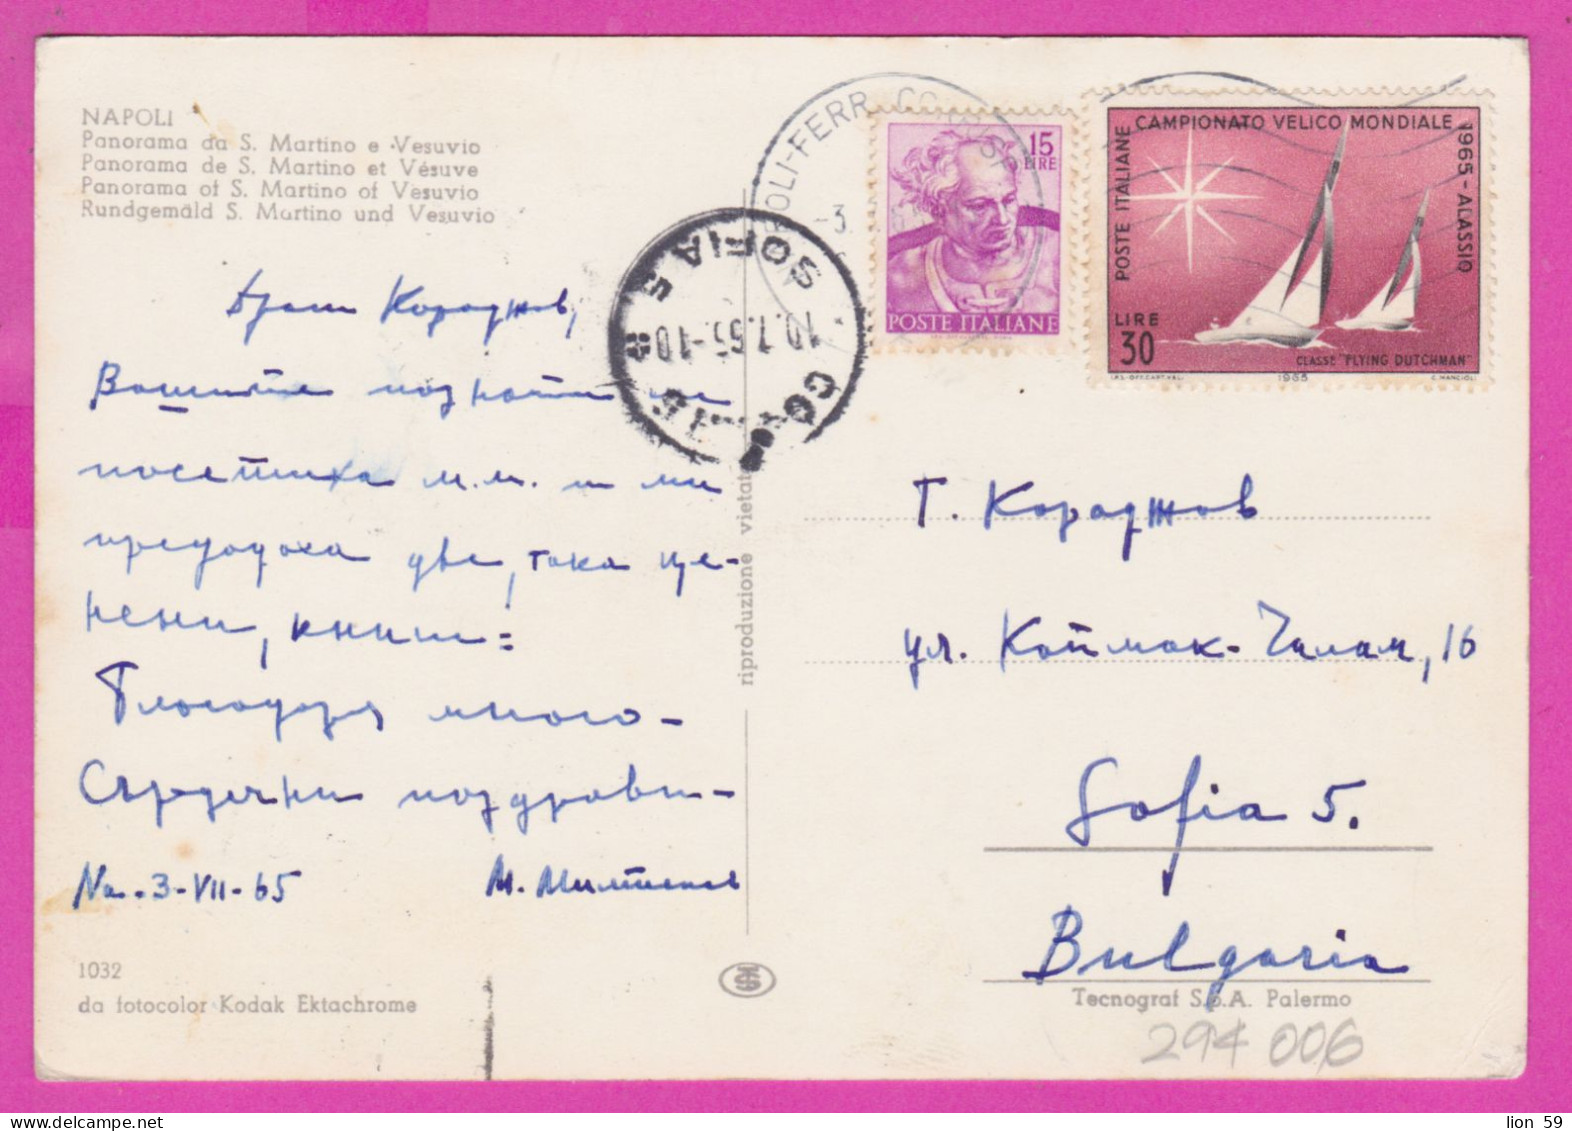 NAPOLI
Panorama da S. Martino e Vesuvio
Panorama de S. Martino et Vésuve
Panorama of S. Martino of Vesuvio
Rundgemäld S. Martino und Vesuvio
Драги Кораджов,
Вашите познати ме
посетиха м.м. и ми
предадоха две, така це-
нени, книги:
Благодаря много –
Сърдечни поздрави –
Na. 3-VII-65
1032
da fotocolor Kodak Ektachrome
riproduzione vietata
SOFIA 5
10.7.65-10
15
LIRE
POSTE ITALIANE
CAMPIONATO VELICO MONDIALE
1965 - ALASSIO
POSTE ITALIANE
LIRE
30
CLASSE "FLYING DUTCHMAN"
I.P.S.-OFF.CART.VAL.
1965
C. MANCIOLI
Т. Кораджов
ул. Коймак-Чалам, 16
Sofia 5.
Bulgaria
Tecnograf S.p.A. Palermo
294 006
lion 59